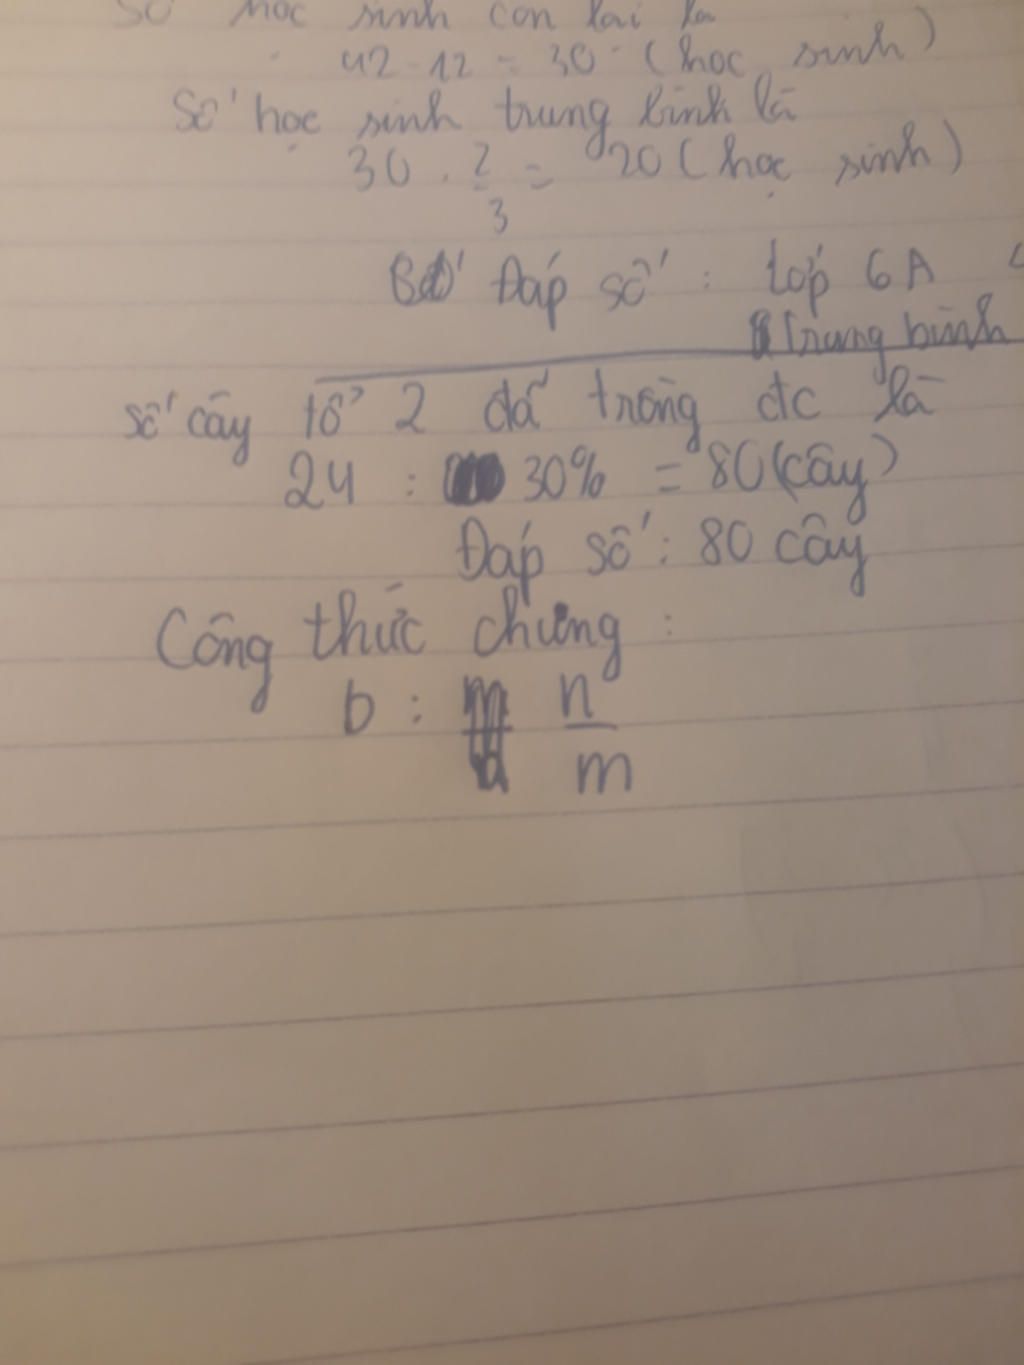 Số học sinh còn lại là
42 - 12 = 30 (học sinh)
Số học sinh trung bình là
30 . 2/3 = 20 (học sinh)
Đáp số : Lớp 6A
Trung bình
số cây tổ 2 đã trồng đc là
24 : 30% = 80 (cây)
Đáp số : 80 cây
Công thức chung :
b : n/m